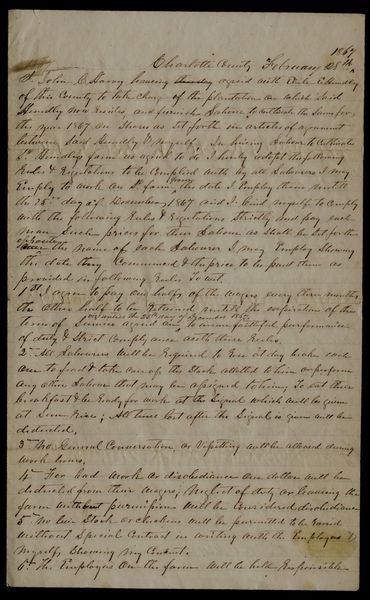 1867
Charlotte County February 28th
I John C Harvy haveing agred with Hundley
of this County to take charge of the plantation on which said
Hundley now resides and furnish Labour to cultivate the same for
the year 1867 on Shares as set forth in articles of agrument
between said Hundley & Myself. In hireing Labour to Cultivate
Sd Hundleys farm as agred to do I hereby adopt the following
Rules & Regulations to be Complied with by all Labourers I may
Employ to work on Sd farm from the date I Employ them untill
the 25th day of December 1867 and I bind myself to Comply
with the following Rules & Regulations Strictly and pay each
man Such prices for their Labour as Shall be Set forth
opposite the name of each Labourer I may Employ Showing
the date they Commenced & the price to be paid them as
provided in following Rules To wit.
1st I agree to pay one half of the wages every three months
the other half to be Retained untill the expiration of their
term of Service agred on to insure faithful performance
of duty & Strict Complyance with these Rules.
2nd All Labourers will be Required to Rise at day brake each
one to feed & take care of the Stock allotted to him or perform
any other Labour that may be assigned to him, To eat their
breakfast & be Ready for work at the Signal which will be given
at Sun Rise; All time lost after the Signal is given will be
deducted,
3rd No General Conversation or Visitting will be allowed during
work hours.
4th For bad work or disobediance one dollar will be
deducted from their wages; Neglect of duty or leaving the
farm without permission will be Considered disobediance
5th No live Stock or chickens will be permitted to be raised
without Special Contract in writing with the Employees &
Myself, Showing my Consent.
6th The Employees on the farm will be held Responsible